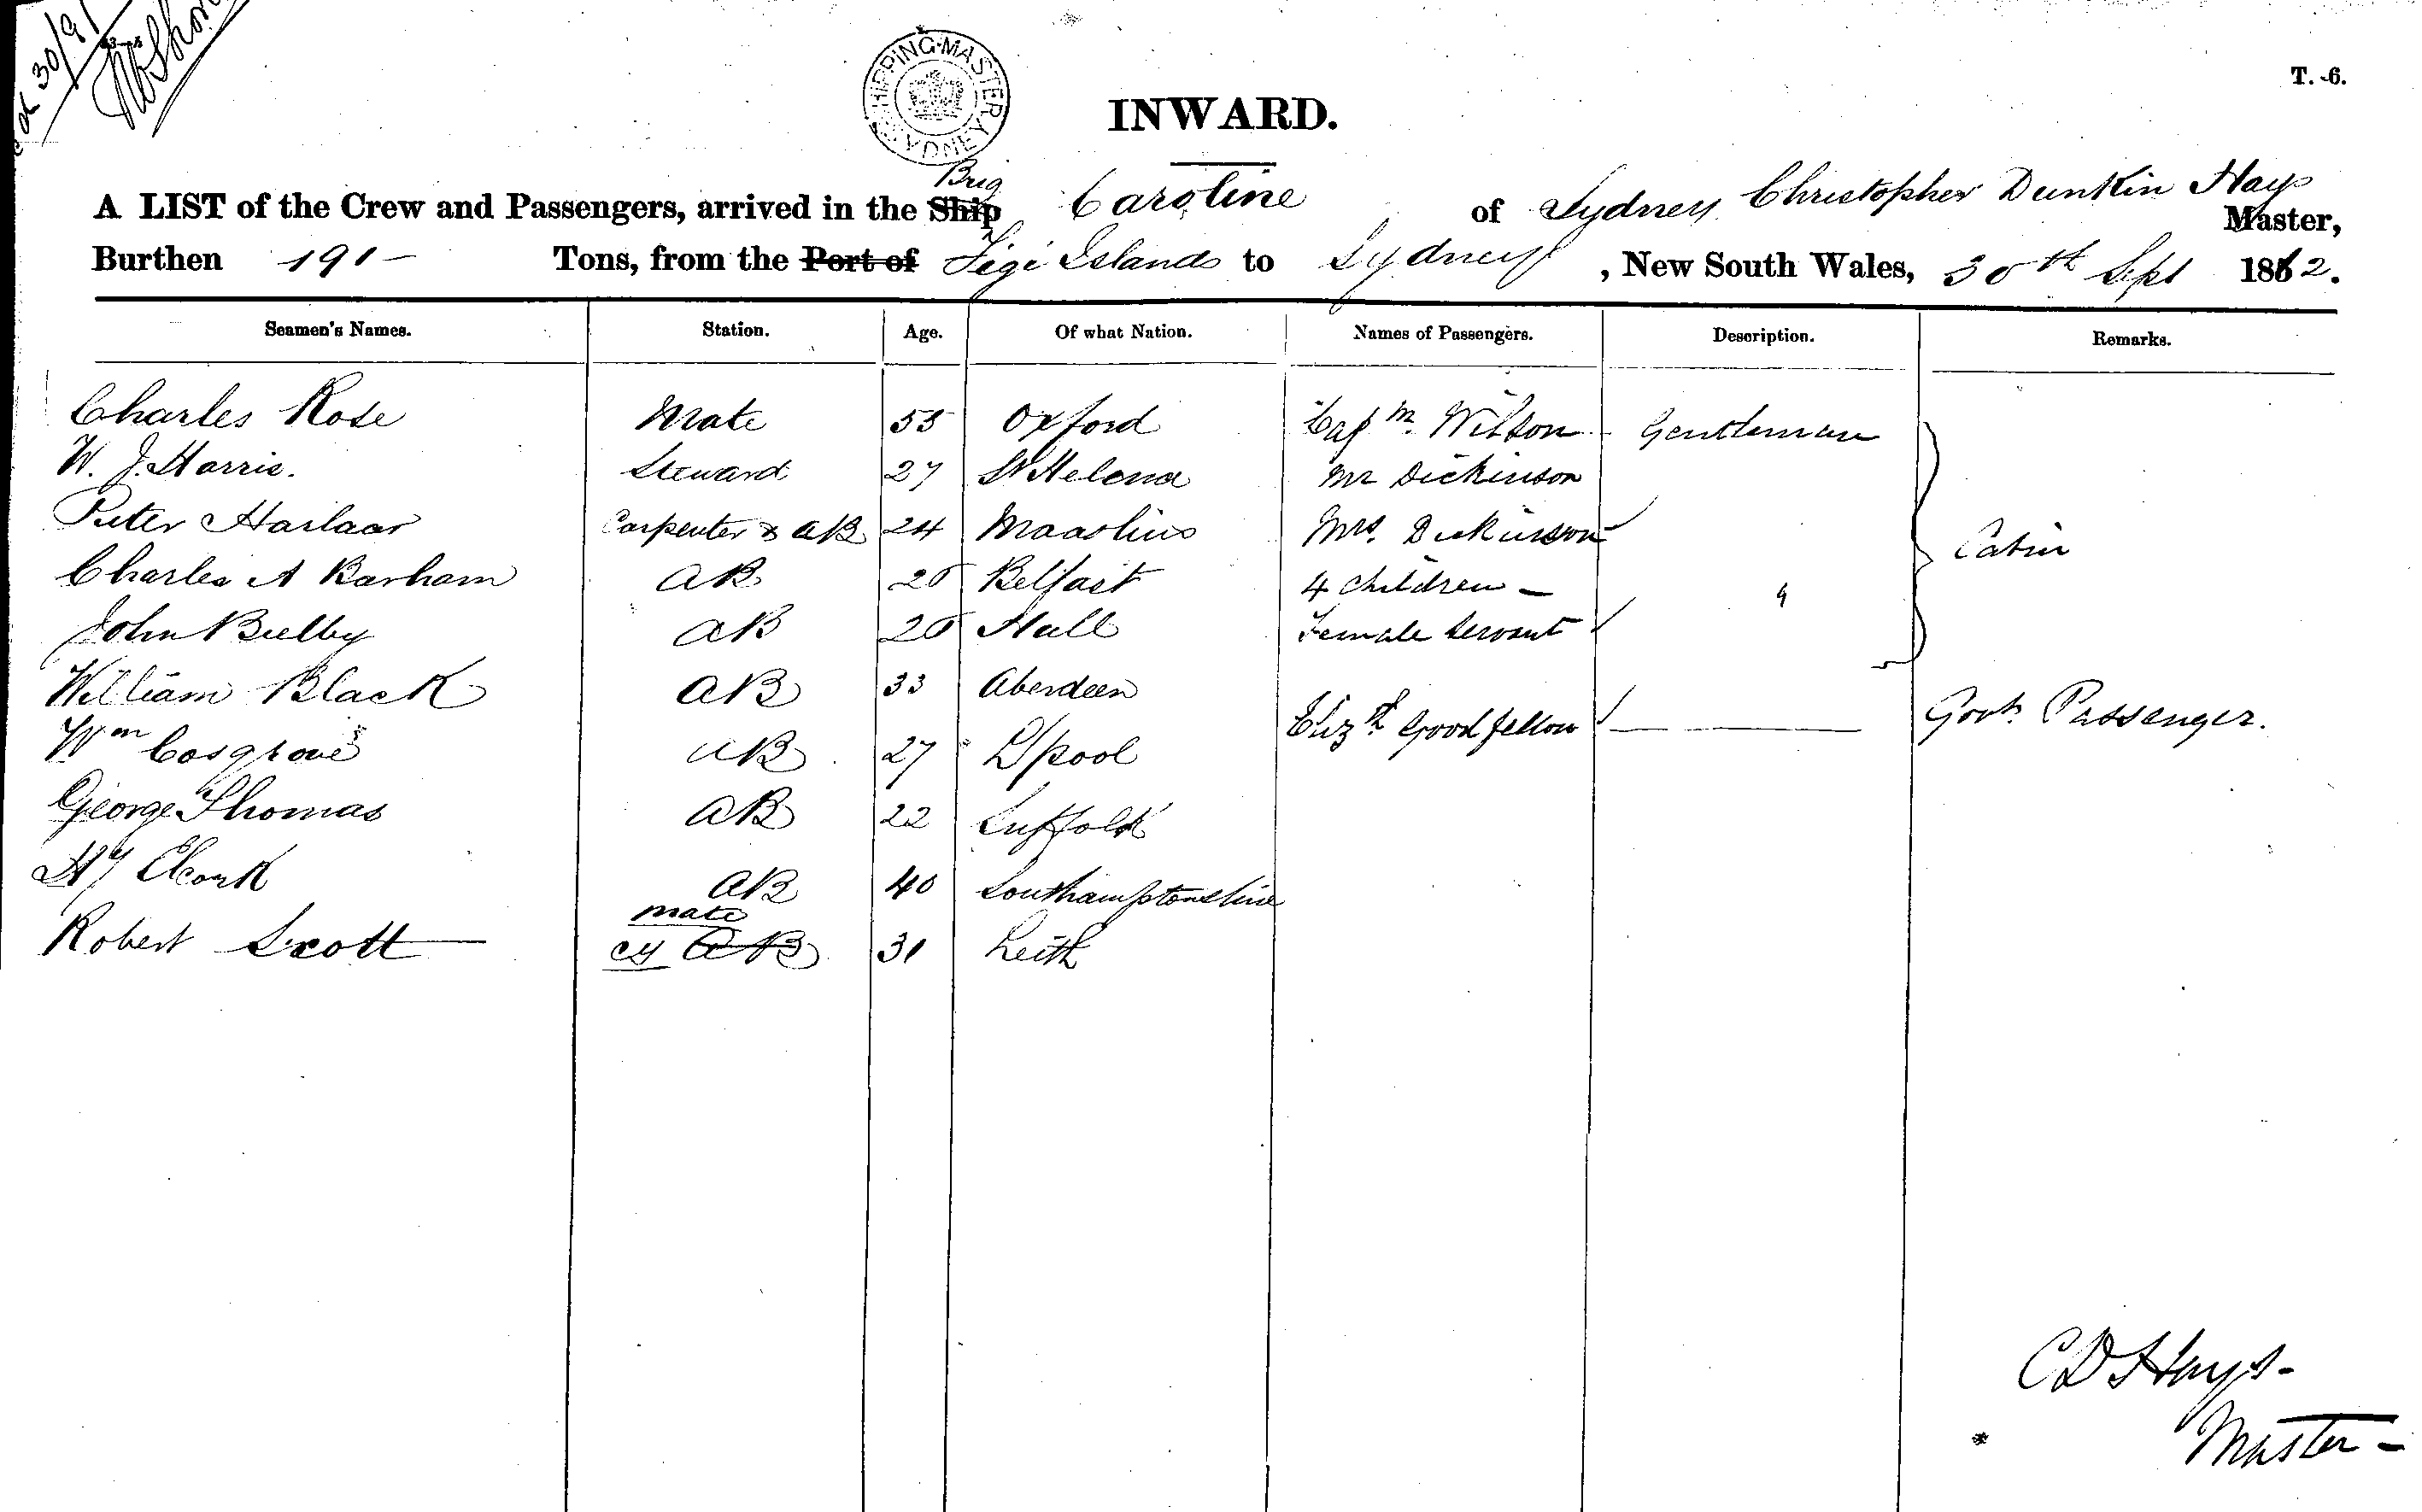 T. 6.
SHIPPING MASTER SYDNEY
INWARD.
Brig
A LIST of the Crew and Passengers, arrived in the Ship Caroline of Sydney Christopher Dunkin Hays Master,
Burthen 191 — Tons, from the Port of Figi Islands to Sydney, New South Wales, 30th Sept 1862.
Seamen's Names. Station. Age. Of what Nation. Names of Passengers. Description. Remarks.
Charles Rose Mate 55 Oxford Capm. Wilson Gentleman
W. J. Harris. Steward 27 St Helena Mr Dickinson
Peter Harlaar Carpenter & AB 24 Mrs. Dickinson Cabin
Charles A Barham AB Belfast 4 Children —
John Bulby AB Hull Female Servant
William Black AB 33 Aberdeen
Wm Cosgrove AB 27 L'pool Elizth Goodfellow Govt. Passenger.
George Thomas AB 22 Suffolk
Hy AB 40 Southamptonshire
mate
Robert Scott AB 31 Leith
C D Hays -
Master -